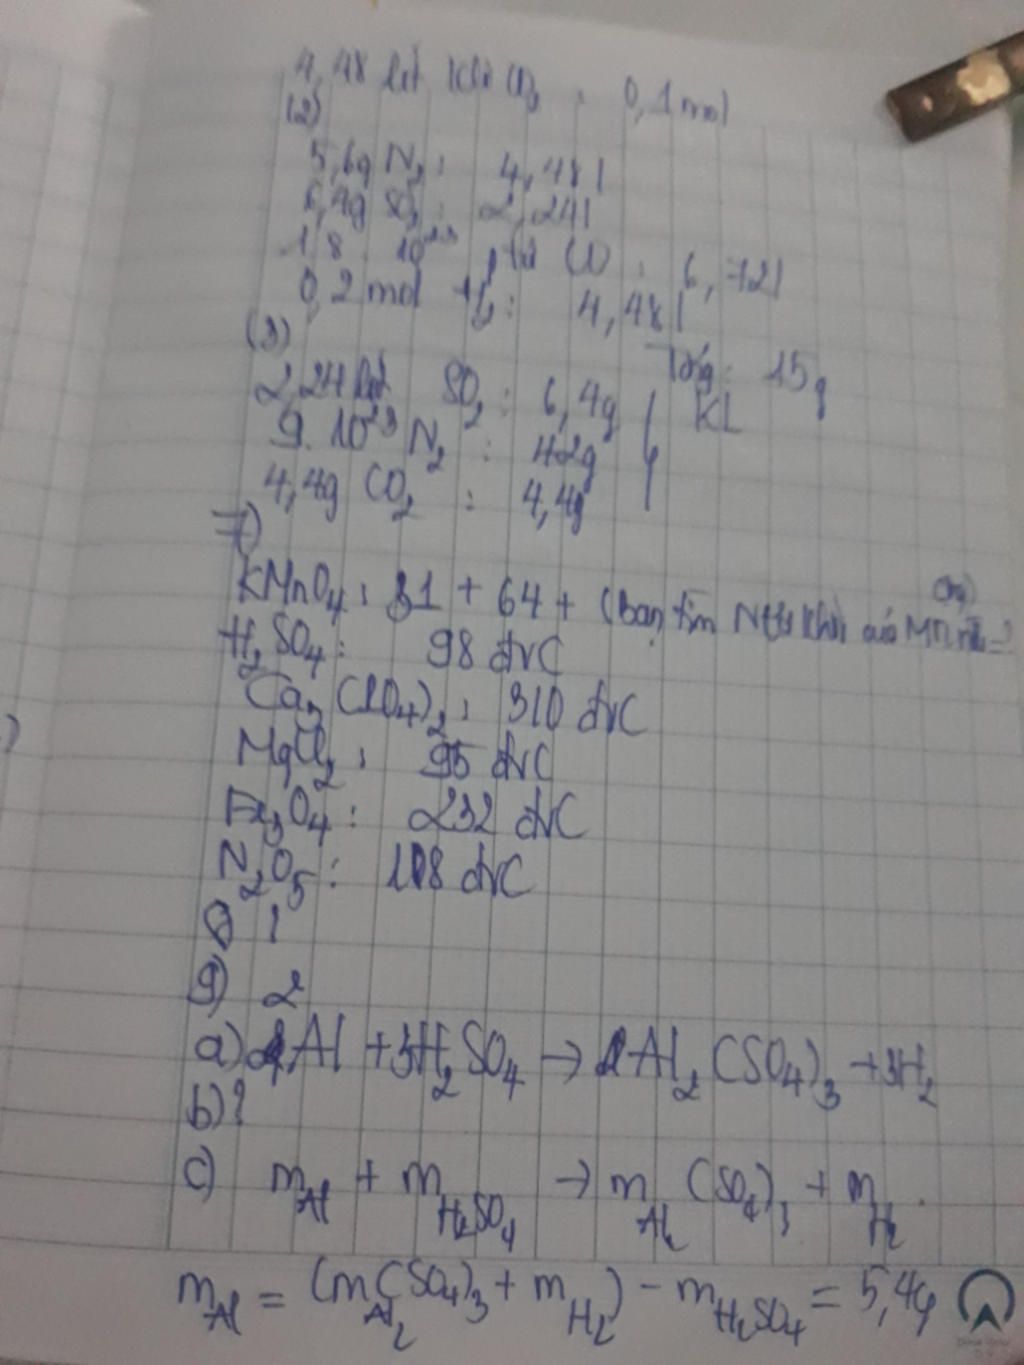 4,48 lít khí O₂ : 0,1 mol
(2)
5,6g N₂ : 4,48 l
6,4g SO₂ : 2,24l
1,8 10²³ ptử : 6,72l
0,2 mol H₂ : 4,48 l
(3)
Tổng : 15g
2,24 lít SO₂ : 6,4g KL
9.10²³ N₂ : 42g
4,4g CO₂ : 4,4g
7)
KMnO₄ : 31 + 64 + (Bạn tìm Ntử khối của Mn
H₂SO₄ : 98 đvC
Ca₃(PO₄)₂ : 310 đvC
MgCl₂ : 95 đvC
Fe₃O₄ : 232 đvC
N₂O₅ : 108 đvC
8) 1
9) 2
a) 2Al + 3H₂SO₄ → 1Al₂(SO₄)₃ + 3H₂
b) ?
c) m Al + m H₂SO₄ → m Al₂(SO₄)₃ + m H₂
m Al = (m Al₂(SO₄)₃ + m H₂) - m H₂SO₄ = 5,4g